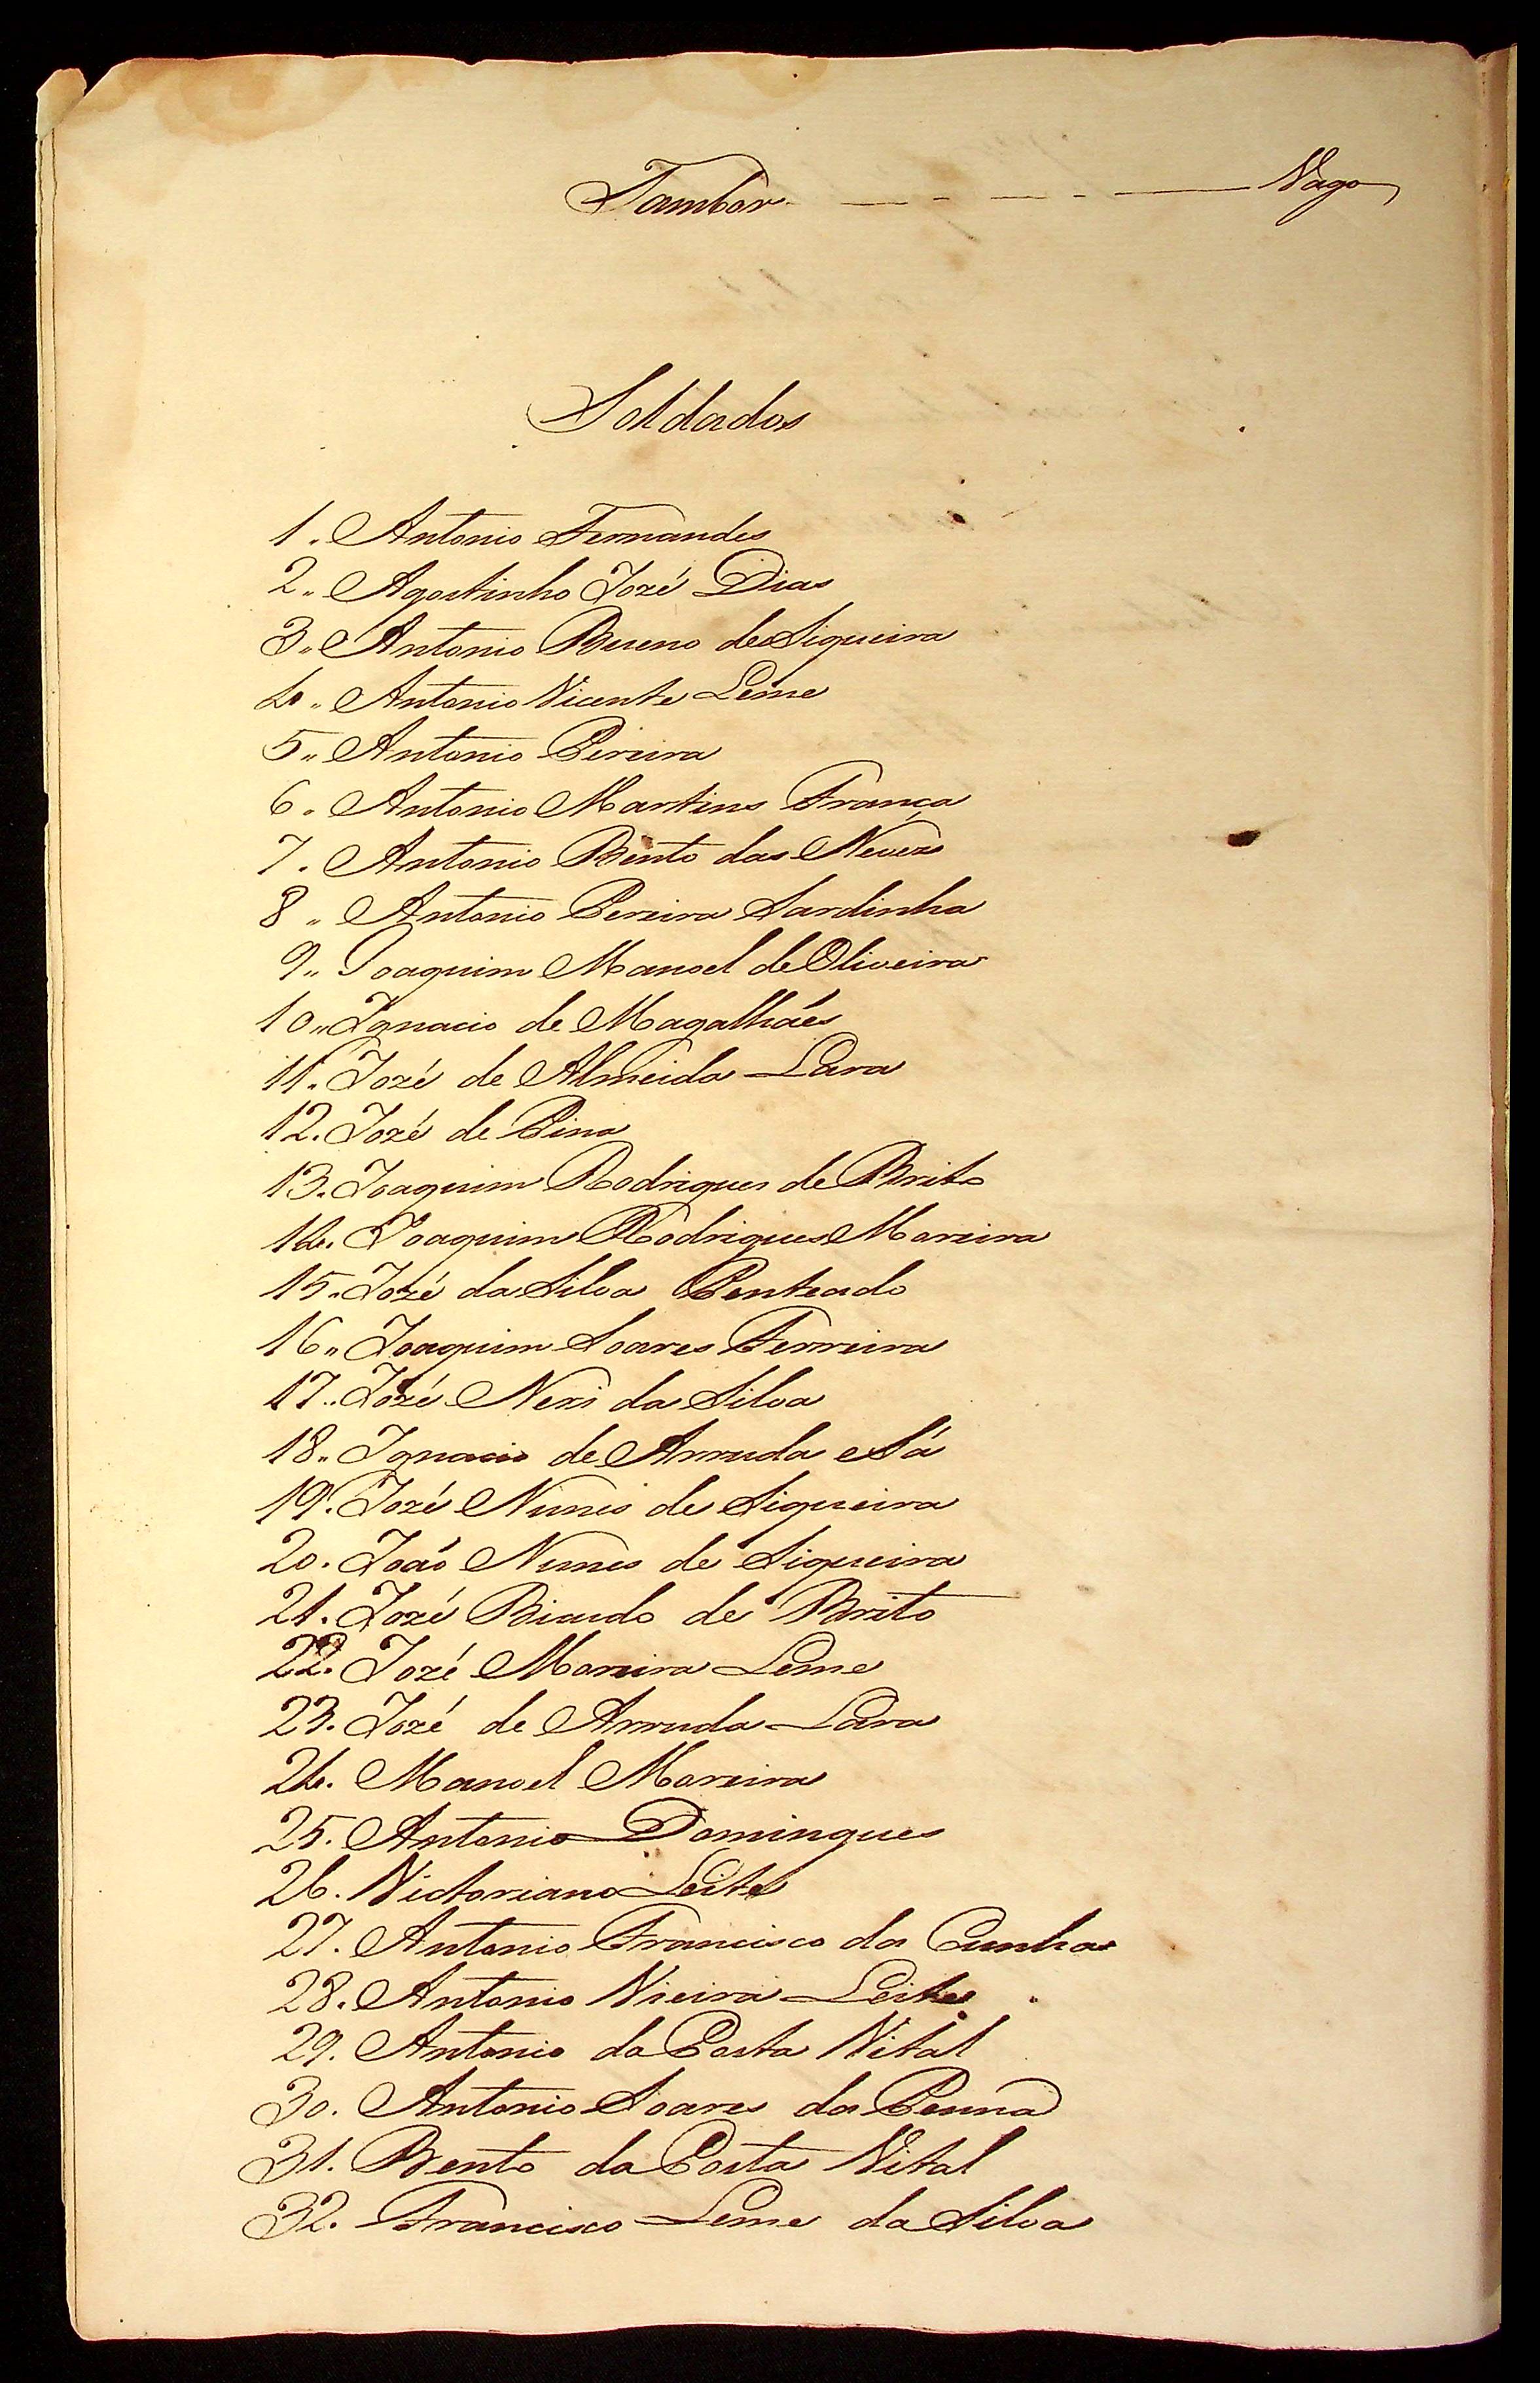 Tambor - — - — - — Vago
Soldados
1. Antonio Fernandes
2.. Agostinho Jozé Dias
3.. Antonio Bueno de Siqueira
4.. Antonio Vicente Leme
5.. Antonio Pereira
6. Antonio Martins França
7. Antonio Bento das Neves
8.. Antonio Pereira Sardinha
9.. Joaquim Manoel de Oliveira
10.. Ignacio de Magalhães
11. Jozé de Almeida Lara
12. Jozé de Pina
13. Joaquim Rodrigues de Brito
14. Joaquim Rodrigues Moreira
15. Jozé da Silva Penteado
16.. Joaquim Soares Ferreira
17.. Jozé Neri da Silva
18.. Ignacio de Arruda e Sá
19. Jozé Nunes de Siqueira
20. João Nunes de Siqueira
21. Jozé Bicudo de Brito
22. Jozé Moreira Leme
23. Jozé de Arruda Lara
24. Manoel Moreira
25. Antonio Domingues
26. Victoriano Leite
27. Antonio Francisco da Cunha
28. Antonio Vieira Leite
29. Antonio da Costa Vital
30. Antonio Soares da Penna
31. Bento da Costa Vital
32. Francisco Leme da Silva